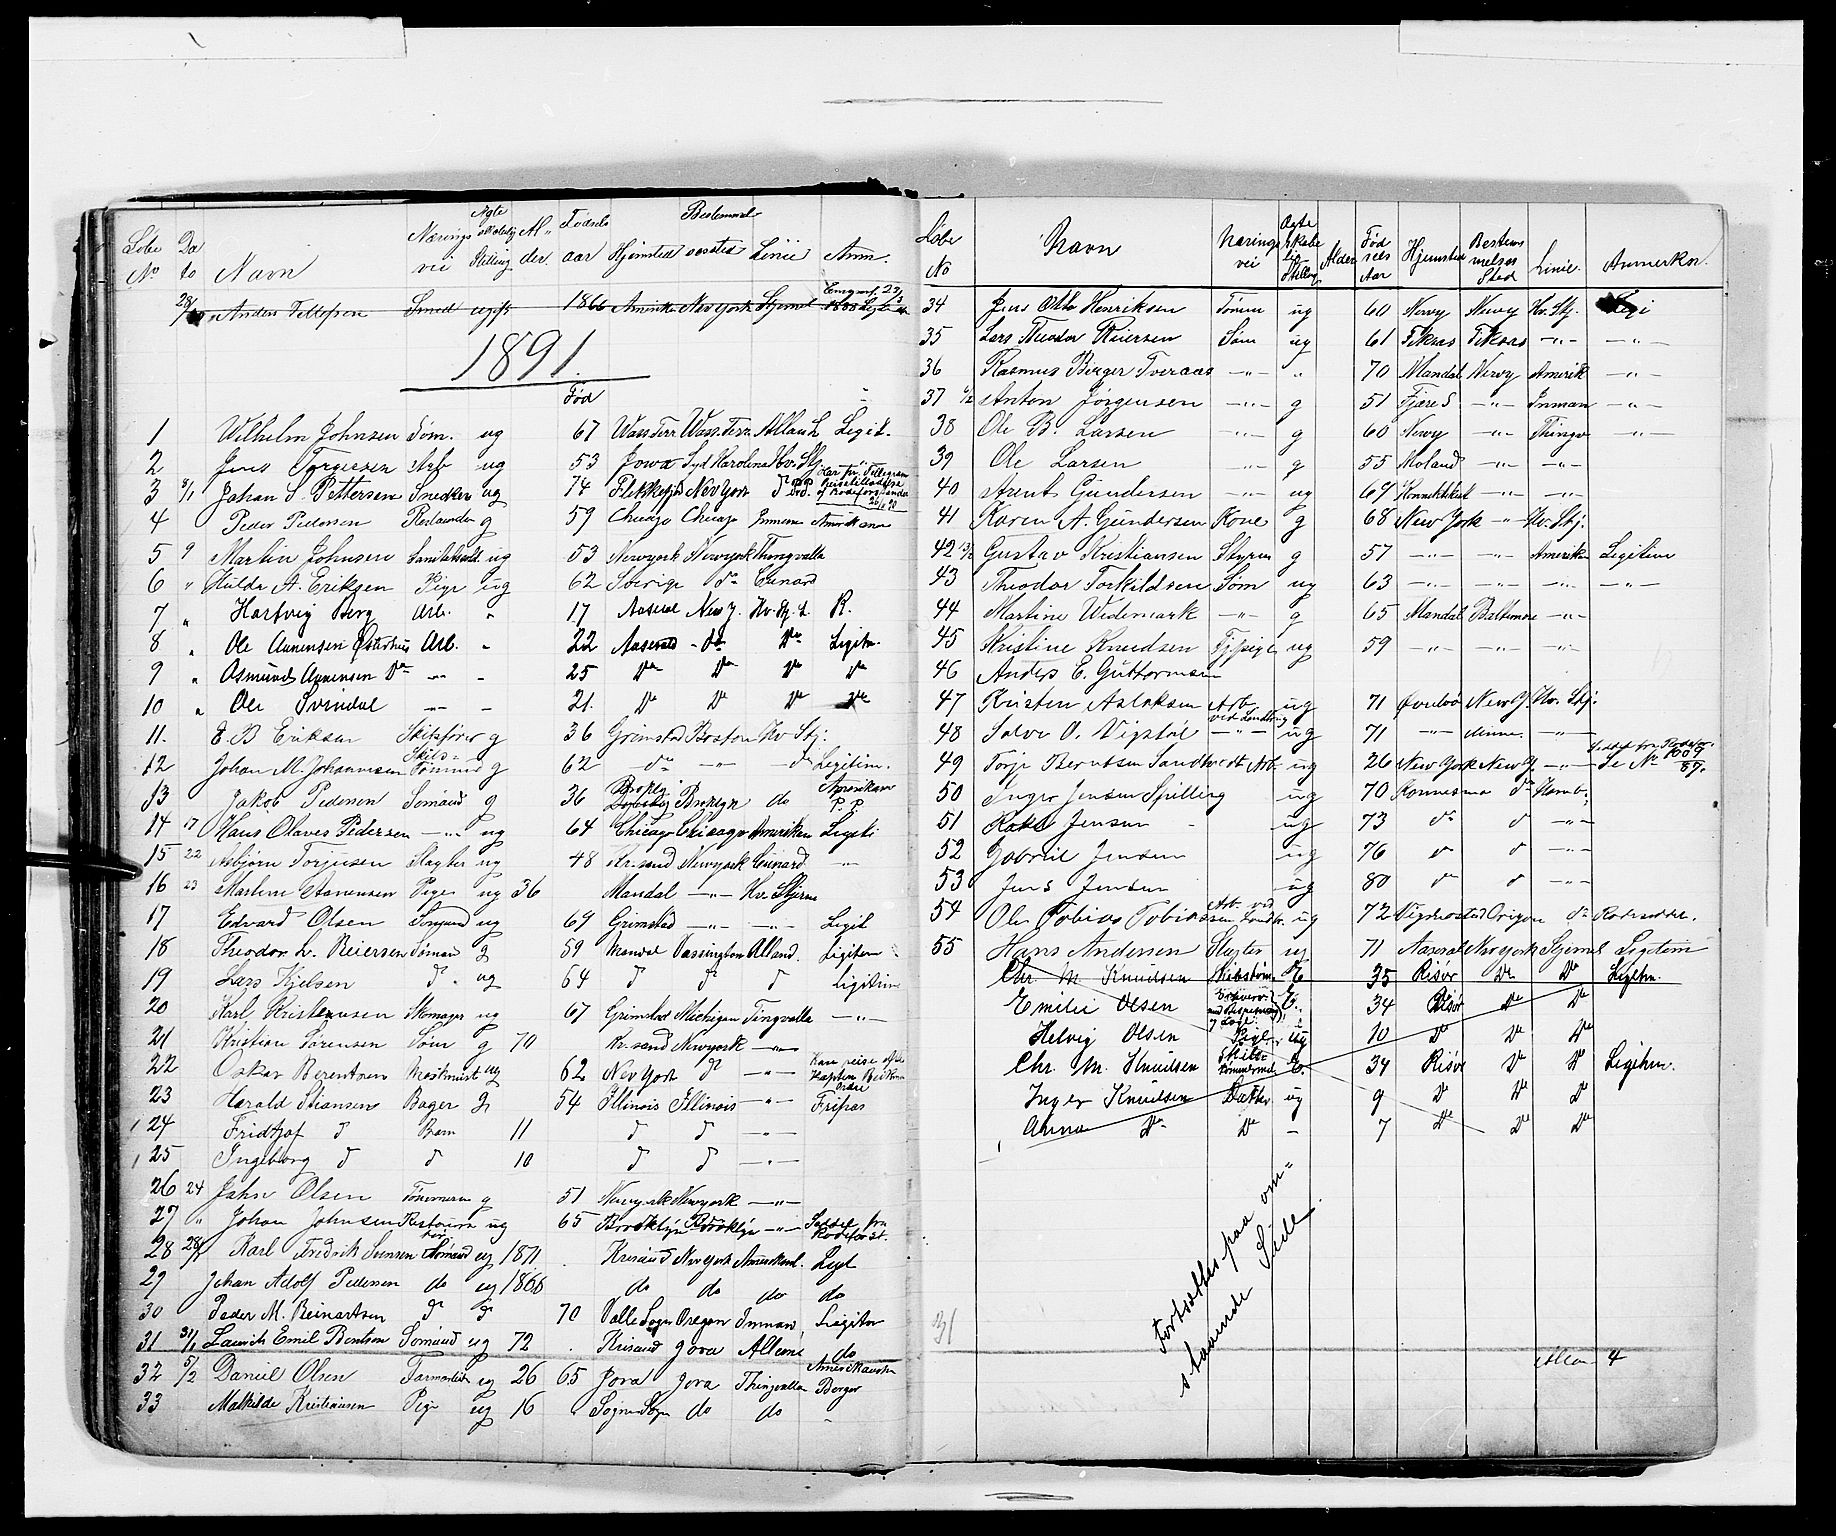 Løbe No Da to Navn Nærings vei Ægte skabelig Stilling Al- der Fødsels aar Hjemsted Bestemmel- sessted Linie Anm.
28/10 Anders Tellefsen Smed ugift 1866 Amerika Newyork Stjernel
1891.
Fød
1 Wilhelm Johnsen Søm. ug 67 Wass. Terr. Wass. Terr. Allan L Legit.
2 Jens Torgersen Arb ug 53 Jowa Syd Karolina Hv. Stj. "
3 8/1 Johan S. Pettersen Snedker ug 74 Flekkefjd New York Do
4 Peder Pedersen g 59 Chicago Chicago Inman Amerikana
5 9 Martin Johnsen ug 53 Newyork Newyork Thingvalla
6 " Hulda A. Eriksen Pige ug 62 Sverige do Cunard
7 " Hartvig Berg Arb. " 17 Aaseral New Y. Hv. Stj. L. R.
8 " Ole Aanensen Østerhus Arb. - 22 Aaserad do Do Legitm.
9 " Asmund Aanensen Do -"- - 25 Do Do Do Do
10 " Ole Svindal -"- - 21. Do Do Do Do
11. E. B. Eriksen Skibsfører g 36 Grimstad Boston Hv Stj.
12 Johan M. Johannesen Skibs- Tømmd g 62 -do- -"- do Legitim.
13 Jakob Pedersen Sømand g 36 Broklyn Broklyn do Amerikans P. P.
14 17 Hans Olaves Pedersen -"- ug 64 Chicago Chicago Amerikan Legiti
15 22 Asbjørn Torjusen Slagter ug 48 Kr.sand Newyork Cunard -"-
16 23 Martine Aanensen Pige ug 36 Mandal -"- Hv. Stjerne
17 Edvard Olsen Sømand ug 69 Grimstad -"- -"- Legit
18 Theodor L. Reiersen Sømand g 59 Mandal Vassington Alland. Ligitim
19 Lars Kjelsen d. ug 64 d d d Ligitim
20 Karl Kristensen Skomager ug 67 Grimstad Michigan Tingvalla -"-
21 Kristian Sørensen Søm g 70 Kr.sand Newyork -"-
22 Oskar Berentsen Maskinist ug 62 New York d -"- Kan reise efter Kaptein ordre
23 Harald Stiansen Bager g 54 Illinois Illinois -"- Fripas
24 Fridtjof d Barn 11 d d -"-
25 Ingeborg d d 10 d d -"-
26 24 John Olsen Tømmerm g 51 Newyork Newyork -"-
27 " Johan Johnsen ug 65 Brooklyn Brooklyn -"- Seddel fra Rodeforst.
28 28/1 Karl Fredrik Svensen Sømand ug 1871 Krsand New York Amerikanl. Legt
29 Johan Adolf Pedersen do ug 1866 do do do do
30 Peder M. Reinertsen d d 70 Valle Sogn Oregon Inman Ligitm
31 31/1 Lauritz Emil Bentsen Sømand ug 72 Krisand Jova Allans do
32 5/2 Daniel Olsen Farmarbeid ug 26 65 Jova Jova Thingvalla Berger
33 Mathilde Kristiansen Pige ug 16 Sogne do do -
Løbe No Navn Nærings vei Ægte skabe lig Stilling Alder Fød sels Aar Hjemsted Bestem melses Sted Linie. Anmerkn.
34 Jens Otto Henriksen Tømm ug 60 Newy Newy Hv. Stj. Legi
35 Lars Theodor Reiersen Søm ug 61 Teksas Teksas -"- -"-
36 Rasmus Birger Tveraas -"- " 70 Mandal Newy Amerik -"-
37 6/2 Anton Jørgensen -"- g 51 Fjære S -"- Inman -"-
38 Ole B. Larsen -"- g 60 Newy -"- Thingv -"-
39 Ole Larsen -"- g 55 Moland -"- -"-
40 Arent Gundersen -"- ug 64 Konnektikut -"- -"-
41 Karen A. Gundersen Kone g 68 New York -"- Hv. Stj.
42 13/2 Gustav Kristiansen Styrm g 57 -"- -"- Amerikn Legitim
43 Theodor Torkildsen Søm ug 63 -"- -"- -"- -"-
44 Martine Widemark -"- g 65 Mandal Baltimore -"-
45 Kristine Knudsen Tj.pige ug 59 -"- -"- -"-
46 Anders E. Guttormsen
47 Kristen Aslaksen Arb. ved Landbrug ug 71 Øvrebø New Y. Hv. Stj.
48 Salve O. Vigstøl -"- ug 71 -"- Minne. -"-
49 Torje Berntsen Sandtvedt Arb. ug 26 New York New Y. -"- Seddel fra Rodefor. Se No 1009/87.
50 Inger Jensen Spilling ug 70 do Hamb.
51 Jensen - ug 73 do d -"-
52 Gabriel Jensen ug 76 d d -"-
53 Jens Jensen ug 80 do d -"-
54 Ole Tobias Tobiassen Arb. ved Landbr. ug 72 Vigdrostad Origon do Rodeseddel.
55 Hans Andersen Slagter ug 71 Aaseral Newyork Stjernel Legitim
Chr. M. Knudsen G 35 Risør Do Do Legitm.
Emilie Olsen G. 34 Risør Do Do
Helvig Olsen Pige ug 10 D D D
Chr. M. Knudsen Skibs- tømmermd G. 34 Risør D D Legitm.
Inger Knudsen Datter ug 9 D D D
Anna Do Do - 7 D Do Do
Fortsættes paa om-
staaende Side
31
4